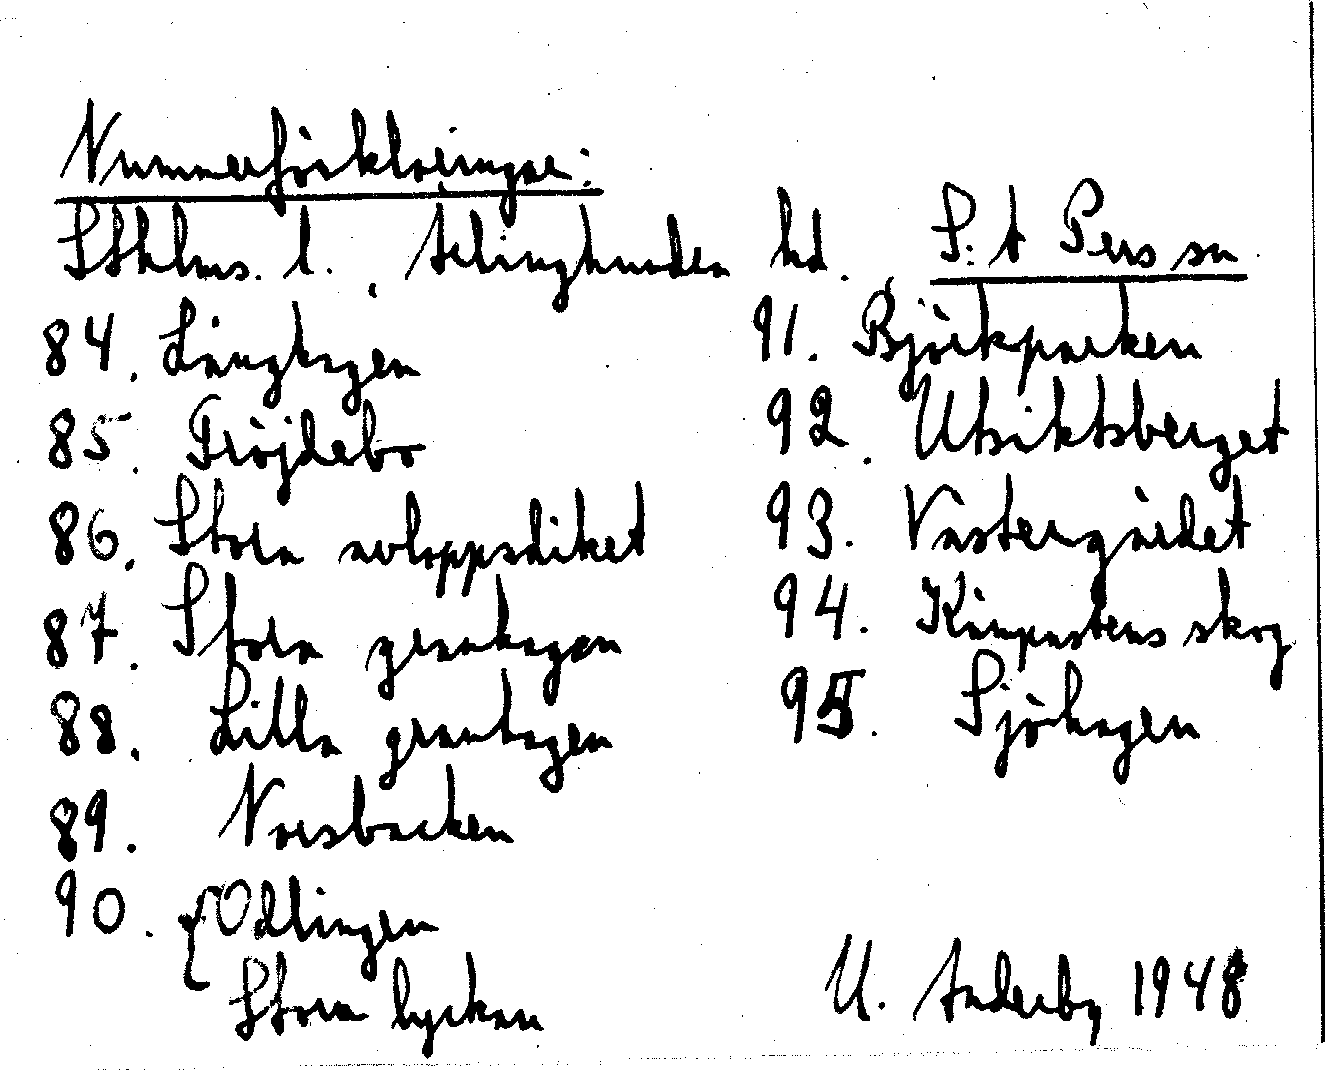 Nummerförklaringar:
Sthlms. l. Ärlinghundra hd. S:t Pers sn
84. Långhagen
85. Fröjdebo
86. Stora avloppsdiket
87. Stora granhagen
88. Lilla granhagen
89. Norsbacken
90. { Odlingen
Stora lyckan
91. Björkparken
92. Utsiktsberget
93. Västergärdet
94. Kämpastens skog
95. Sjöhagen
U. Anderby 1948